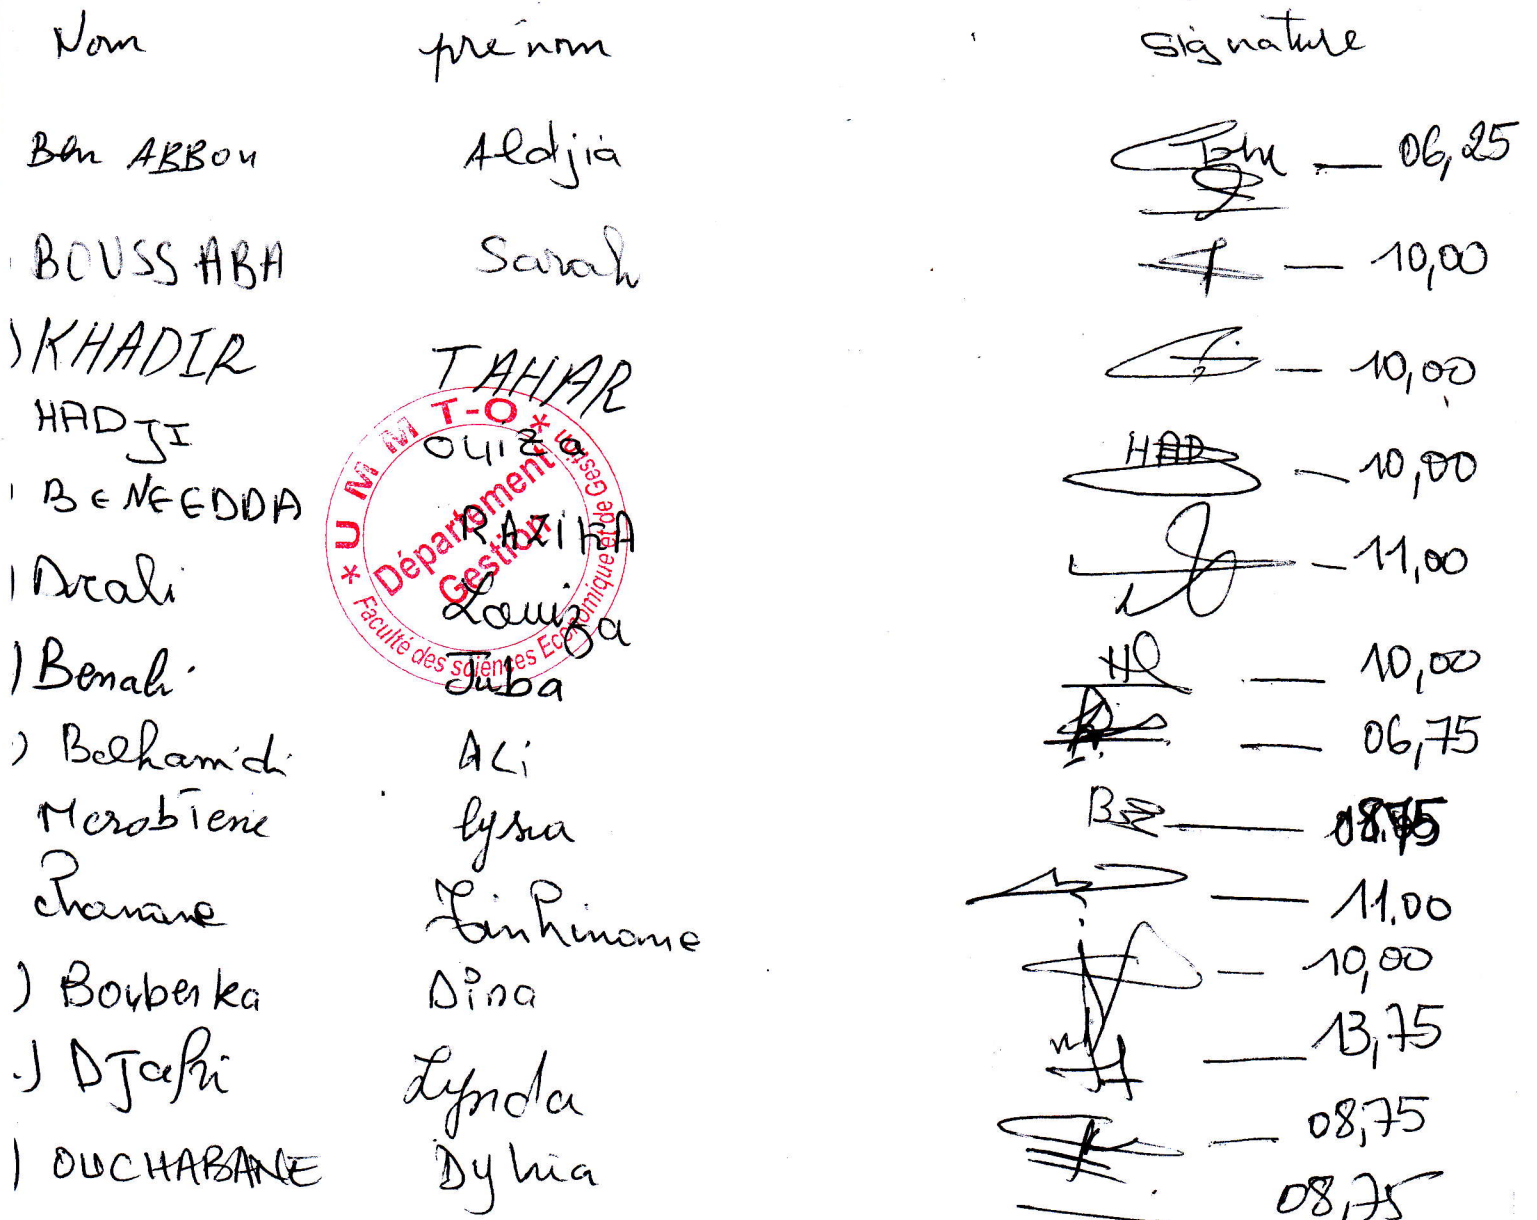 Nom prénom signature
Ben ABBOU Aldjia — 06,25
BOUSSABA Sarah — 10,00
) KHADIR TAHAR — 10,00
HADJI OUIZA HAD — 10,00
BENEEDDA RAZIKA — 11,00
Drali Louiza — 10,00
) Benali Juba — 06,75
) Belhamidi ALi — 08,75
Merobtene lysia — 11,00
chanane Tinhinane — 10,00
) Bouberka Dina — 13,75
) DJafri Lynda — 08,75
) OUCHABANE Dyhia 08,75
* U M M T-O *
Faculté des sciénces Economique et de Gestion
Département
Gestion